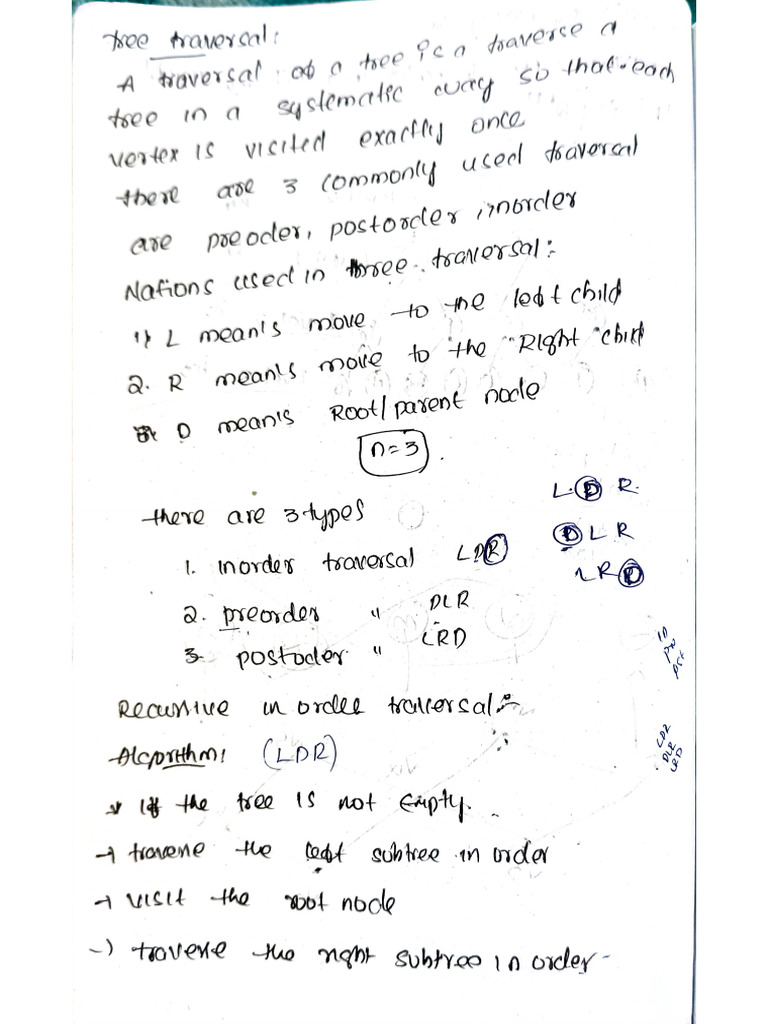 tree traversal:
A traversal of a tree is a traverse a
tree in a systematic way so that each
vertex is visited exactly once
there are 3 commonly used traversal
are preoder, postorder, inorder
Nations used in three traversal:-
1) L mean's move to the left child
2. R mean's move to the Right child
3. D mean's Root/parent node
n=3
there are 3 types
L.D R.
1. inorder traversal LDR
D L R
LRD
2. preorder " DLR
3. postoder " LRD
in
pre
pst
Recursive in order traversal:-
Algorithm: (LDR)
LDR
DLR
LRD
If the tree is not Empty.
→ traverse the left subtree in order
→ visit the root node
→ traverse the right subtree in order-